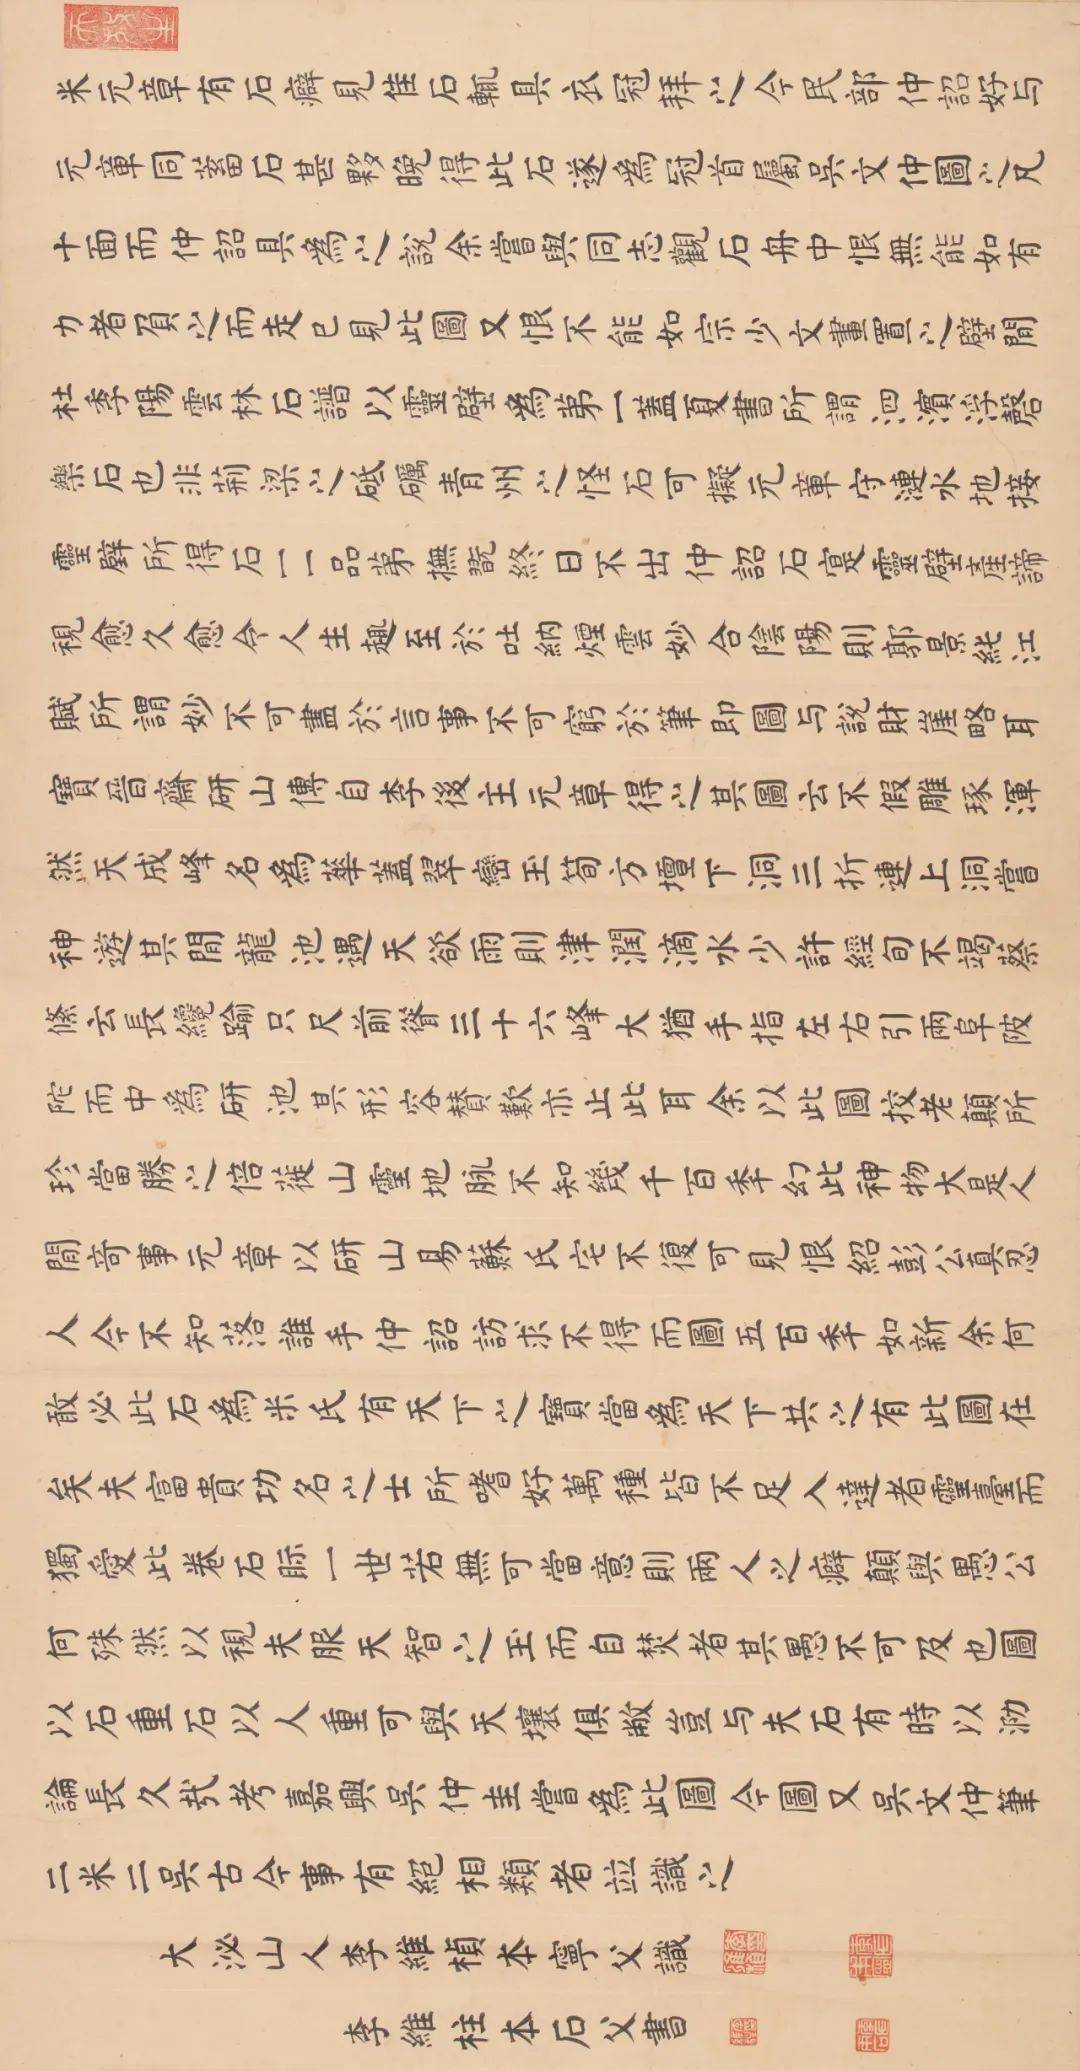 米元章有石癖見佳石輒具衣冠拜之今民部仲詔好与
元章同蓄石甚夥晚得此石遂為冠首屬吳文仲圖之凡
十面而仲詔具為之說余嘗與同志觀石舟中恨無能如有
力者負之而走已見此圖又恨不能如宗少文畫置之壁間
杜季陽雲林石譜以靈壁為第一蓋夏書所謂泗濱浮磬
樂石也非荊梁之砥礪青州之怪石可擬元章守漣水地接
靈壁所得石一一品第撫翫終日不出仲詔石寔靈壁產諦
視愈久愈令人生趣至於吐納煙雲妙合陰陽則郭景純江
賦所謂妙不可盡於言事不可窮於筆即圖与說財崖略耳
寶晉齋研山傳自李後主元章得之其圖云不假雕琢渾
然天成峰名為華蓋翠巒玉筍方壇下洞三折連上洞嘗
神遊其間龍池遇天欲雨則津潤滴水少許經旬不竭蔡
絛云長纔踰只尺前聳三十六峰大猶手指左右引兩阜陂
陀而中為研池其形容贊歎亦止此耳余以此圖挍老顛所
珍當勝之倍蓰山靈地脉不知幾千百秊幻此神物大是人
間奇事元章以研山易蘇氏宅不復可見恨紹彭公真忍
人今不知落誰手仲詔訪求不得而圖五百秊如新余何
敢必此石為米氏有天下之寶當為天下共之有此圖在
矣夫富貴功名之士所嗜好萬種皆不足入達者靈臺而
獨愛此卷石眎一世若無可當意則兩人之癖顛與愚公
何殊然以視夫服天智之玉而自焚者其愚不可及也圖
以石重石以人重可與天壤俱敝豈与夫石有時以泐
論長久哉考嘉興吳仲圭嘗為此圖今圖又吳文仲筆
二米二吳古今事有絕相類者竝識之
大泌山人李維楨本寧父識
李維柱本石父書